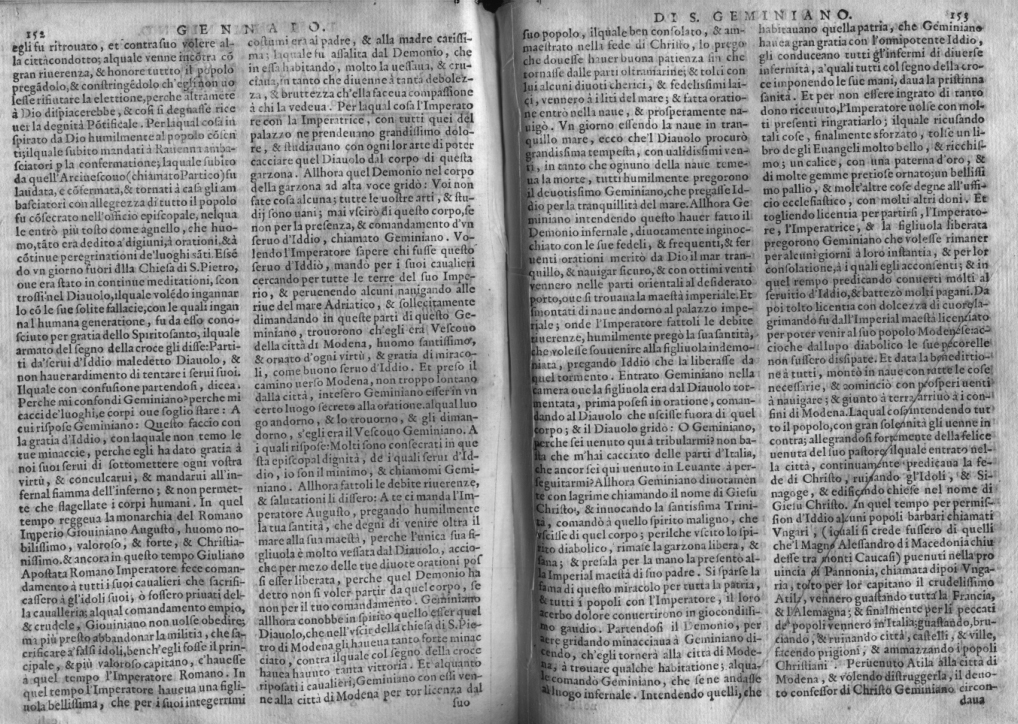 152
GENNAIO.
egli fu ritrouato, et contra suo volere al-
la città condotto; alquale venne incõtra cõ
gran riuerenza, & honore tutto il popolo
pregãdolo, & constringẽdolo ch'egli non uo
lesse rifiutare la elettione, perche altramẽte
à Dio dispiacerebbe, & così si degnasse rice
uer la degnità Põtificale. Per laqual cosa in
spirato da Dio humilmente al popolo cõsen
ti; ilquale subito mandati à Rauenna amba-
sciatori p la confermatione; laquale subito
da quell'Arciuescouo (chiamato Partico) fu
laudata, e cõfermata, & tornati à casa gli am
basciatori con allegrezza di tutto il popolo
fu cõsecrato nell'officio episcopale, nelqua
le entrò più tosto come agnello, che huo-
mo, tãto era dedito a' digiuni, à orationi, & à
cõtinue peregrinationi de' luoghi sãti. Essẽ
do vn giorno fuori dlla Chiesa di S. Pietro,
oue era stato in continue meditationi, scon
trossi nel Diauolo, ilquale volẽdo ingannar
lo cõ le sue solite fallacie, con le quali ingan
na l'humana generatione, fu da esso cono-
sciuto per gratia dello Spirito santo, ilquale
armato del segno della croce gli disse: Parti-
ti da' serui d'Iddio maledetto Diauolo, &
non hauer ardimento di tentare i serui suoi.
Ilquale con confusione partendosi, dicea.
Perche mi confondi Geminiano? perche mi
cacci de' luoghi, e corpi oue soglio stare: A
cui rispose Geminiano: Questo faccio con
la gratia d'Iddio, con laquale non temo le
tue minaccie, perche egli ha dato gratia à
noi suoi serui di sottomettere ogni vostra
virtù, & conculcarui, & mandarui all'in-
fernal fiamma dell'inferno; & non permet-
te che flagellate i corpi humani. In quel
tempo reggeua la monarchia del Romano
Imperio Giouiniano Augusto, huomo no-
bilissimo, valoroso, & forte, & Christia-
nissimo. & ancora in questo tempo Giuliano
Apostata Romano Imperatore fece coman-
damento à tutti i suoi caualieri che sacrifi-
cassero à gl'idoli suoi, ò fossero priuati del-
la caualleria: al qual comandamento empio,
& crudele, Giouiniano non uolse obedire;
ma più presto abbandonar la militia, che sa-
crificare a' falsi idoli, bench'egli fosse il prin-
cipale, & più valoroso capitano, c'hauesse
à quel tempo l'Imperatore Romano. In
quel tempo l'Imperatore haueua una figli-
uola bellissima, che per i suoi integerrimi
costumi era al padre, & alla madre carissi-
ma: laquale fu assalita dal Demonio, che
in essa habitando, molto la uessaua, & cru-
ciaua, in tanto che diuenne à tanta debolez-
za, & bruttezza ch'ella faceua compassione
à chi la vedeua. Per laqual cosa l'Imperato
re con la Imperatrice, con tutti quei del
palazzo ne prendeuano grandissimo dolo-
re, & studiauano con ogni lor arte di poter
cacciare quel Diauolo dal corpo di questa
garzona. Allhora quel Demonio nel corpo
della garzona ad alta voce gridò: Voi non
fate cosa alcuna; tutte le uostre arti, & stu-
dij sono uani; mai vscirò di questo corpo, se
non per la presenza, & comandamento d'vn
seruo d'Iddio, chiamato Geminiano. Vo-
lendo l'Imperatore sapere chi fusse questo
seruo d'Iddio, mandò per i suoi caualieri
cercando per tutte le terre del suo Impe-
rio, & peruenendo alcuni nauigando alle
riue del mare Adriatico, & sollecitamente
dimandando in queste parti di questo Ge-
miniano, trouorono ch'egli era Vescouo
della città di Modena, huomo santissimo,
& ornato d'ogni virtù, & gratia di miraco-
li, come buono seruo d'Iddio. Et preso il
camino uerso Modena, non troppo lontano
dalla città, intesero Geminiano esser in vn
certo luogo secreto alla oratione. alqual luo
go andorno, & lo trouorno, & gli diman-
dorno, s'egli era il Vescouo Geminiano. A
i quali rispose: Molti sono consecrati in que
sta episcopal dignità, de i quali serui d'Id-
dio, io son il minimo, & chiamomi Gemi-
niano. Allhora fattoli le debite riuerenze,
& salutationi li dissero: A te ci manda l'Im-
peratore Augusto, pregando humilmente
la tua santità, che degni di venire oltra il
mare alla sua maestà, perche l'unica sua fi-
gliuola è molto vessata dal Diauolo, accio-
che per mezo delle tue diuote orationi pos
si esser liberata, perche quel Demonio ha
detto non si voler partir da quel corpo, se
non per il tuo comandamento. Geminiano
allhora conobbe in spirito quello esser quel
Diauolo, che nell'vscir della chiesa di S. Pie-
tro di Modena gli hauea tanto forte minac
ciato, contra il quale col segno della croce
hauea hauuto tanta vittoria. Et alquanto
riposati i caualieri, Geminiano con essi ven-
ne alla città di Modena per tor licenza dal
suo
DI S. GEMINIANO.
153
suo popolo, ilquale ben consolato, & am-
maestrato nella fede di Christo, lo pregò
che douesse hauer buona patienza fin che
tornasse dalle parti oltramarine; & tolti con
lui alcuni diuoti cherici, & fedelissimi lai-
ci, vennero à i liti del mare; & fatta oratio-
ne entrò nella naue, & prosperamente na-
uigò. Vn giorno essendo la naue in tran-
quillo mare, ecco che'l Diauolo procurò
grandissima tempesta, con ualidissimi ven-
ti, in tanto che ognuno della naue teme-
ua la morte, tutti humilmente pregorono
il deuotissimo Geminiano, che pregasse Id-
dio per la tranquillità del mare. Allhora Ge-
miniano intendendo questo hauer fatto il
Demonio infernale, diuotamente inginoc-
chiato con le sue fedeli, & frequenti, & fer
uenti orationi meritò da Dio il mar tran-
quillo, & nauigar sicuro, & con ottimi venti
vennero nelle parti orientali al desiderato
porto, oue si trouaua la maestà imperiale. Et
smontati di naue andorno al palazzo impe-
riale; onde l'Imperatore fattoli le debite
riuerenze, humilmente pregò la sua santità,
che volesse souuenire alla figliuola indemo-
niata, pregando Iddio che la liberasse da
quel tormento. Entrato Geminiano nella
camera oue la figliuola era dal Diauolo tor-
mentata, prima posesi in oratione, coman-
dando al Diauolo che uscisse fuora di quel
corpo; & il Diauolo grido: O Geminiano,
perche sei uenuto qui à tribularmi? non ba-
sta che m'hai cacciato delle parti d'Italia,
che ancor sei qui uenuto in Leuante à per-
seguitarmi? Allhora Geminiano diuotamen
te con lagrime chiamando il nome di Giesu
Christo, & inuocando la santissima Trini-
tà, comandò à quello spirito maligno, che
vscisse di quel corpo; perilche vscito lo spi-
rito diabolico, rimase la garzona libera, &
sana; & presala per la mano la presentò al-
la Imperial maestà di suo padre. Si sparse la
fama di questo miracolo per tutta la patria,
& tutti i popoli con l'Imperatore, il loro
acerbo dolore conuertirono in giocondissi-
mo gaudio. Partendosi il Demonio, per
aere gridando minacciaua à Geminiano di-
cendo, ch'egli tornerà alla città di Mode-
na, à trouare qualche habitatione; alqua-
le comandò Geminiano, che se ne andasse
al luogo infernale. Intendendo quelli, che
habitauano quella patria, che Geminiano
hauea gran gratia con l'omnipotente Iddio,
gli conduceano tutti gl'infermi di diuerse
infermità, a' quali tutti col segno della cro-
ce imponendo le sue mani, daua la pristinna
sanità. Et per non essere ingrato di tanto
dono riceuuto, l'Imperatore uolse con mol-
ti presenti ringratiarlo; ilquale ricusando
tali cose, finalmente sforzato, tolse un li-
bro de gli Euangeli molto bello, & ricchis-
mo; un calice, con una paterna d'oro, &
di molte gemme pretiose ornato; un bellissi
mo pallio, & molt'altre cose degne all'uffi-
cio ecclesiastico, con molti altri doni. Et
togliendo licentia per partirsi, l'Imperato-
re, l'Imperatrice, & la figliuola liberata
pregorono Geminiano che volesse rimaner
per alcuni giorni à loro instantia, & per lor
consolatione, à i quali egli acconsentì; & in
quel tempo predicando conuertì molti al
seruitio d'Iddio, & battezò molti pagani. Da
poi tolto licentia con dolcezza di cuore la-
grimando fu dall'Imperial maestà licentiato
per poter venir al suo popolo Modenese, ac-
cioche da lupo diabolico le sue pecorelle
non fussero dissipate. Et data la benedittio-
ne à tutti, montò in naue con tutte le cose
necessarie, & cominciò con prosperi uenti
à nauigare; & giunto à terra arriuò à i con-
fini di Modena. Laqual cosa intendendo tut
to il popolo, con gran solennità gli uenne in
contra; allegrandosi fortemente della felice
uenuta del suo pastore, ilquale entrato nel-
la città, continuamente predicaua la fe-
de di Christo, ruinando gl'Idoli, & Si-
nagoge, & edificando chiese nel nome di
Giesu Christo. In quel tempo per permis-
sion d'Iddio alcuni popoli barbari chiamati
Vngari, (i quali si crede fussero di quelli
che'l Magno Alessandro di Macedonia chiu
desse tra monti Caucasi) puenuti nella pro
uincia di Pannonia, chiamata dipoi Vnga-
ria, & tolto per lor capitano il crudelissimo
Atila, vennero guastando tutta la Francia,
& l'Alemagna; & finalmente per li peccati
de' popoli vennero in Italia; guastando, bru-
ciando, & ruinando città, castelli, & ville,
facendo prigioni, & ammazzando i popoli
Christiani. Peruenuto Atila alla città di
Modena, & volendo distruggerla, il deuo-
to confessor di Christo Geminiano circon-
daua